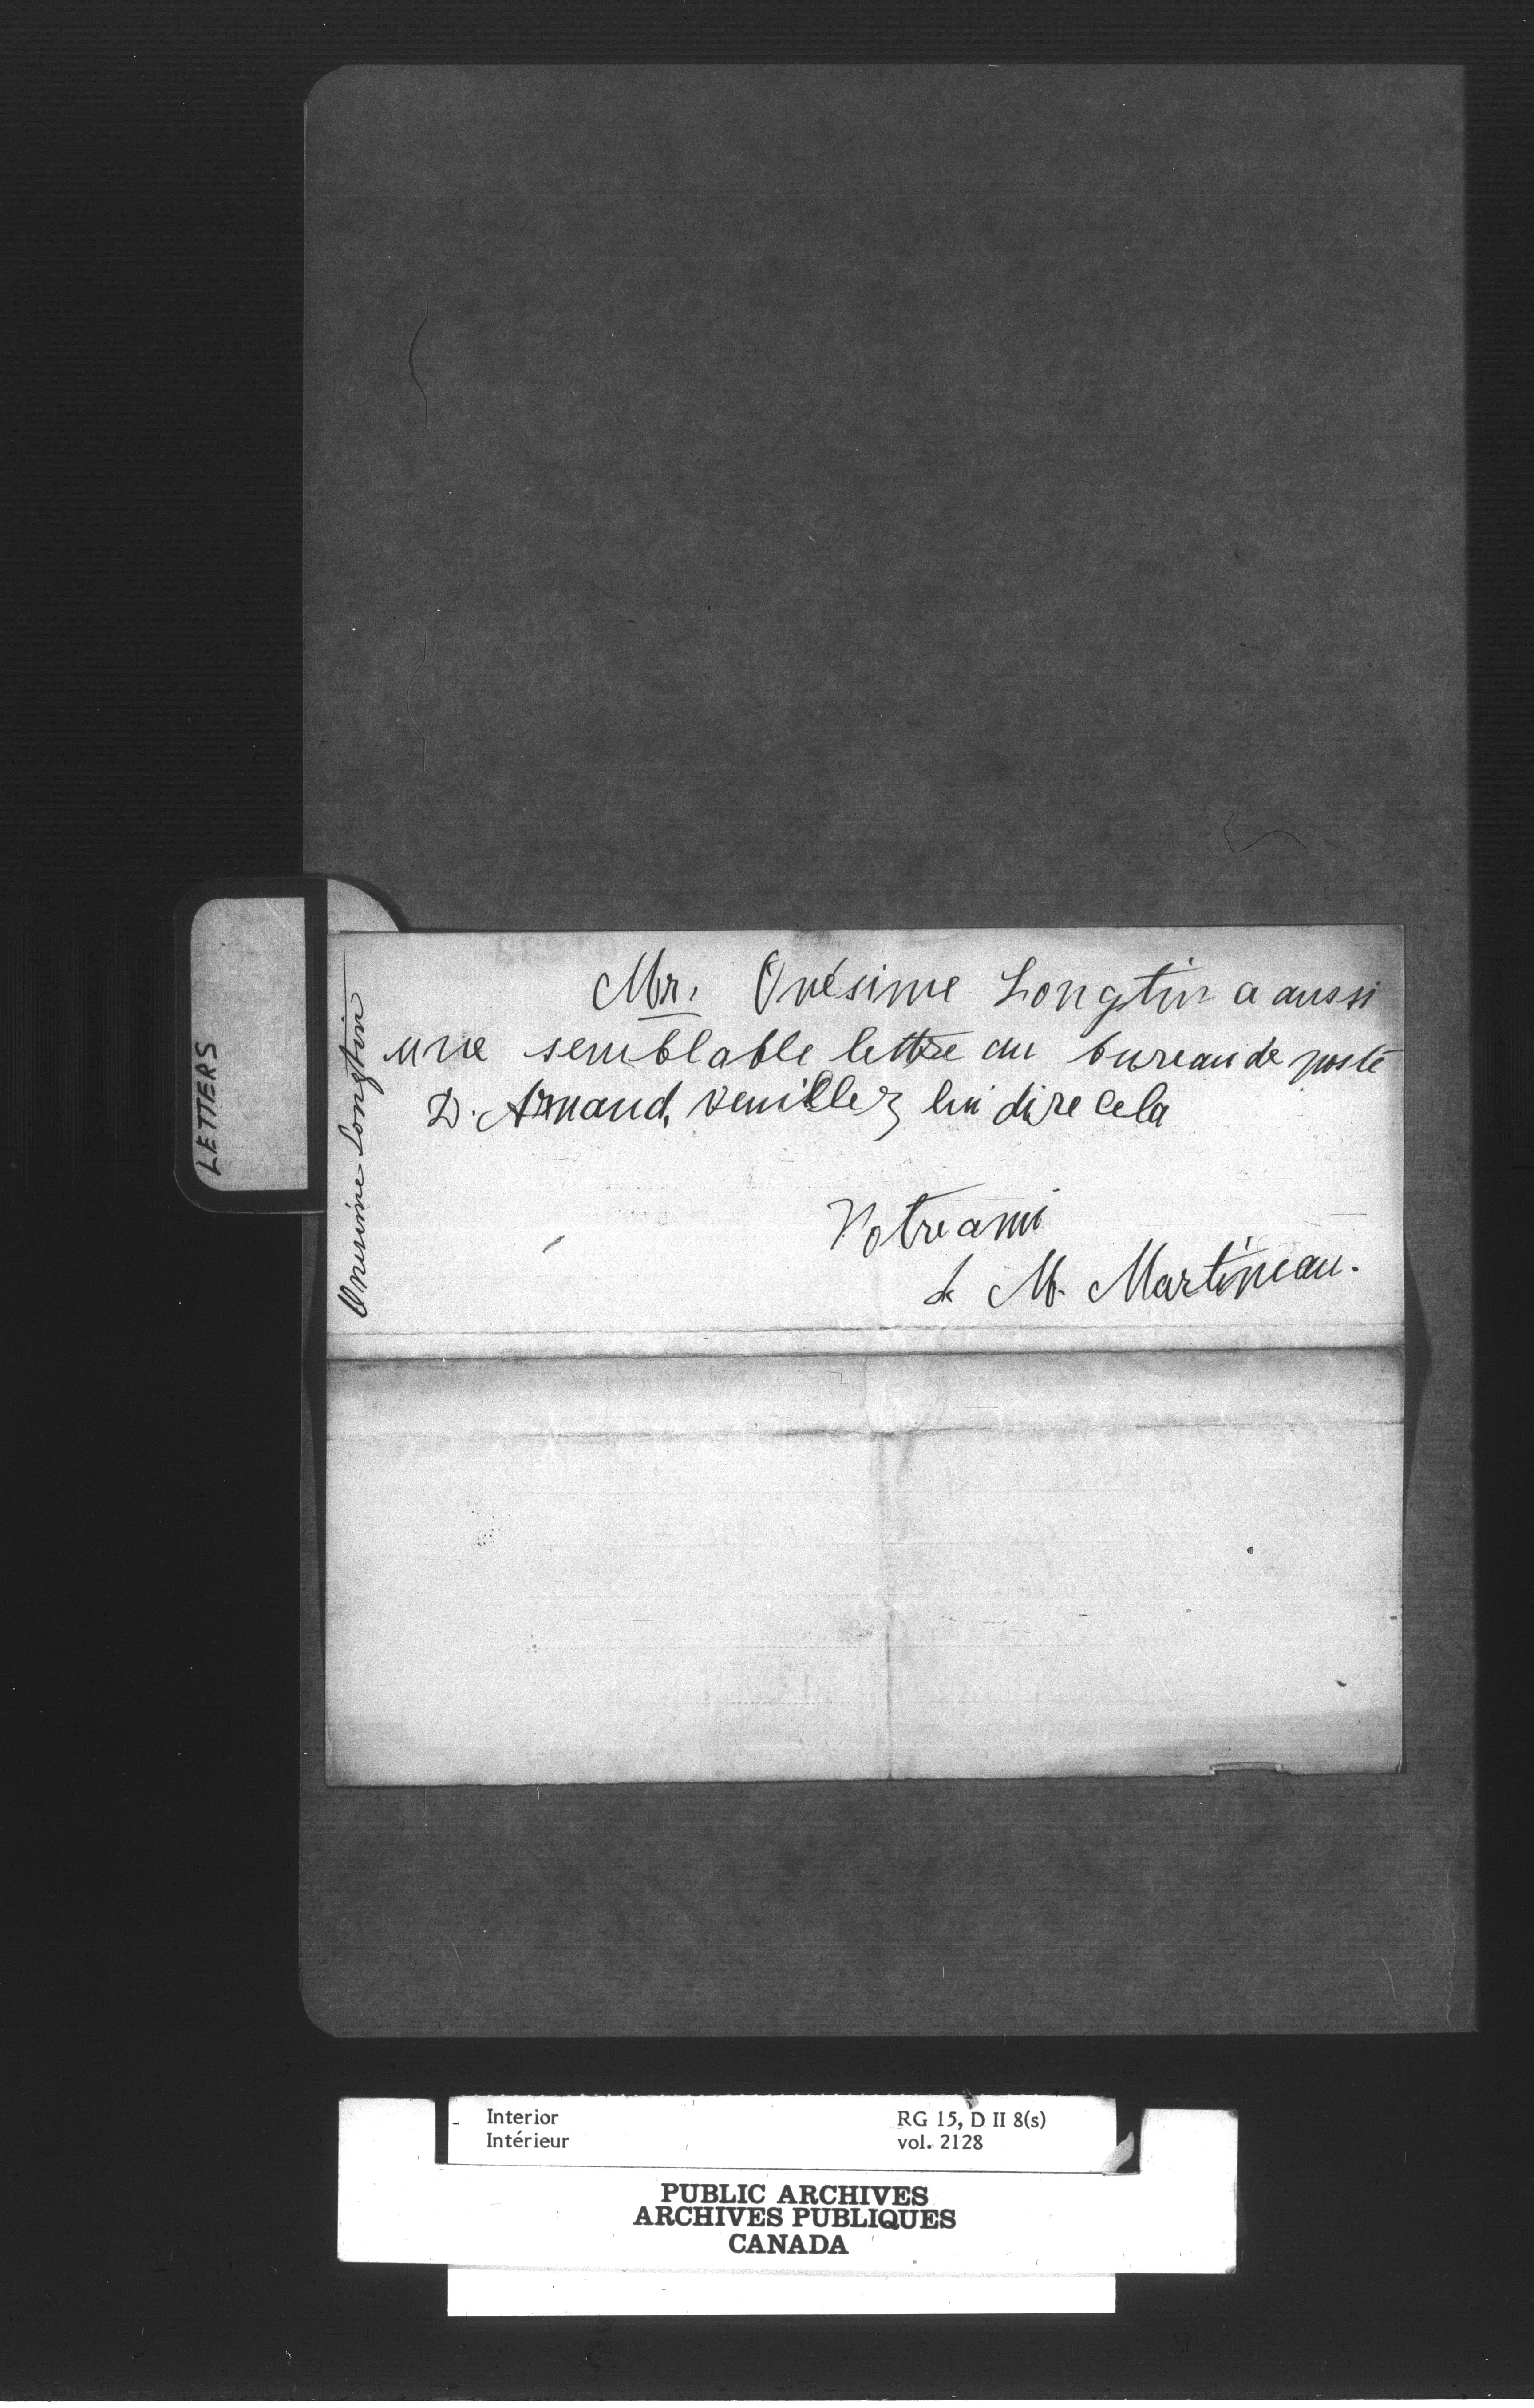 LETTERS
Onesime Longtin
Mr. Onésime Longtin a aussi
une semblable lettre au bureau de poste
D. Arnaud, veuillez lui dire cela
Votre ami
M. Martineau.
Interior
Intérieur
RG 15, D II 8(s)
vol. 2128
PUBLIC ARCHIVES
ARCHIVES PUBLIQUES
CANADA